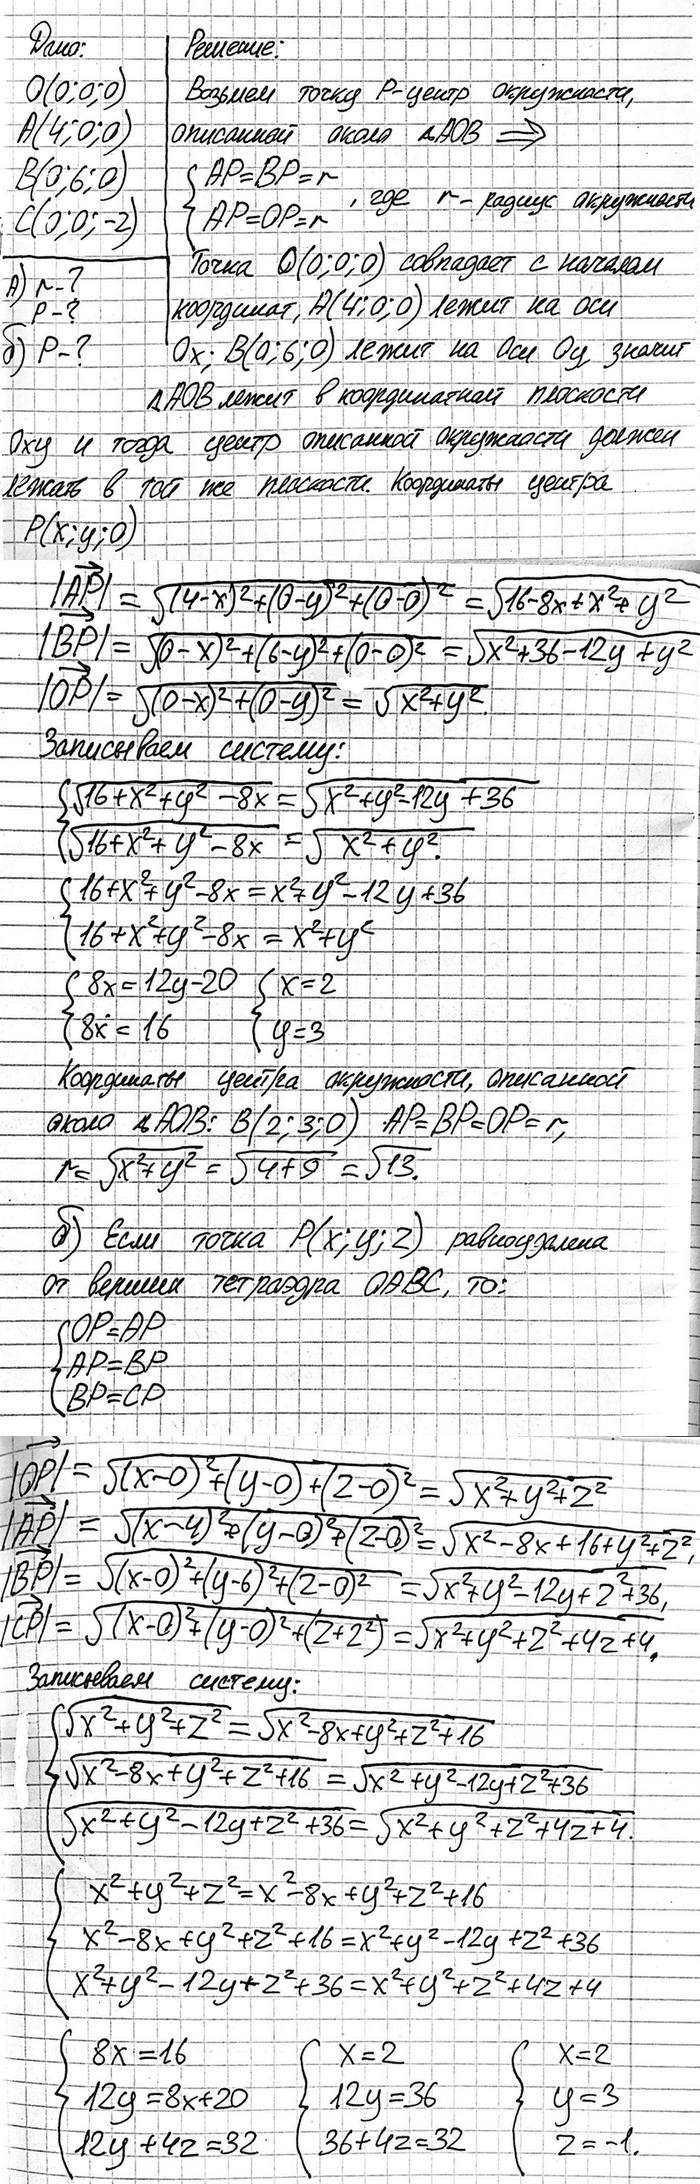 Дано:
O(0;0;0)
A(4;0;0)
B(0;6;0)
C(0;0;-2)
А) r-?
P-?
б) P-?
Решение:
Возьмем точку P-центр окружности,
описанной около ΔAOB ⇒
{AP=BP=r
{AP=OP=r , где r- радиус окружности
Точка O(0;0;0) совпадает с началом
координат, A(4;0;0) лежит на оси
Ox; B(0;6;0) лежит на Оси Oy значит
ΔAOB лежит в координатной плоскости
Oxy и тогда центр описанной окружности должен
лежать в той же плоскости. Координаты центра
P(x;y;0)
|AP| = √(4-x)²+(0-y)²+(0-0)² = √16-8x+x²+y²
|BP| = √(0-x)²+(6-y)²+(0-0)² = √x²+36-12y+y²
|OP| = √(0-x)²+(0-y)² = √x²+y².
Записываем систему:
{√16+x²+y²-8x = √x²+y²-12y+36
{√16+x²+y²-8x = √x²+y².
{16+x²+y²-8x = x²+y²-12y+36
{16+x²+y²-8x = x²+y²
{8x=12y-20 {x=2
{8x=16 {y=3
Координаты центра окружности, описанной
около ΔAOB: B(2;3;0) AP=BP=OP=r,
r=√x²+y² = √4+9 = √13.
б) Если точка P(x;y;z) равноудалена
от вершин тетраэдра OABC, то:
{OP=AP
{AP=BP
{BP=CP
|OP| = √(x-0)²+(y-0)+(z-0)² = √x²+y²+z²
|AP| = √(x-4)²+(y-0)²+(z-0)² = √x²-8x+16+y²+z²,
|BP| = √(x-0)²+(y-6)²+(z-0)² = √x²+y²-12y+z²+36,
|CP| = √(x-0)²+(y-0)²+(z+2²) = √x²+y²+z²+4z+4.
Записываем систему:
{√x²+y²+z² = √x²-8x+y²+z²+16
{√x²-8x+y²+z²+16 = √x²+y²-12y+z²+36
{√x²+y²-12y+z²+36 = √x²+y²+z²+4z+4.
{x²+y²+z²=x²-8x+y²+z²+16
{x²-8x+y²+z²+16=x²+y²-12y+z²+36
{x²+y²-12y+z²+36=x²+y²+z²+4z+4
{8x=16 {x=2 {x=2
{12y=8x+20 {12y=36 {y=3
{12y+4z=32 {36+4z=32 {z=-1.